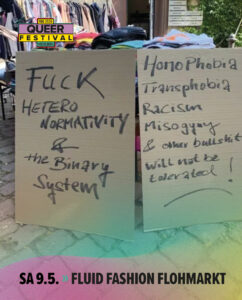 QUEER
FESTIVAL
FUCK
HETERO
NORMATIVITY
&
the Binary
System
HomoPhobia
Transphobia
Racism
Misogyny
& other bullshit
will not be
tolerated!
SA 9.5. • FLUID FASHION FLOHMARKT